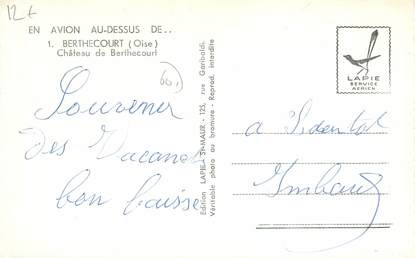 12€
EN AVION AU-DESSUS DE..
1. BERTHECOURT (Oise)
Château de Berthecourt
60
Edition LAPIE - St-MAUR - 125, rue Garibaldi.
Véritable photo au bromure - Reprod. interdite
LAPIE
SERVICE
AÉRIEN
Souvenir
des Vacances
bon baisse
a